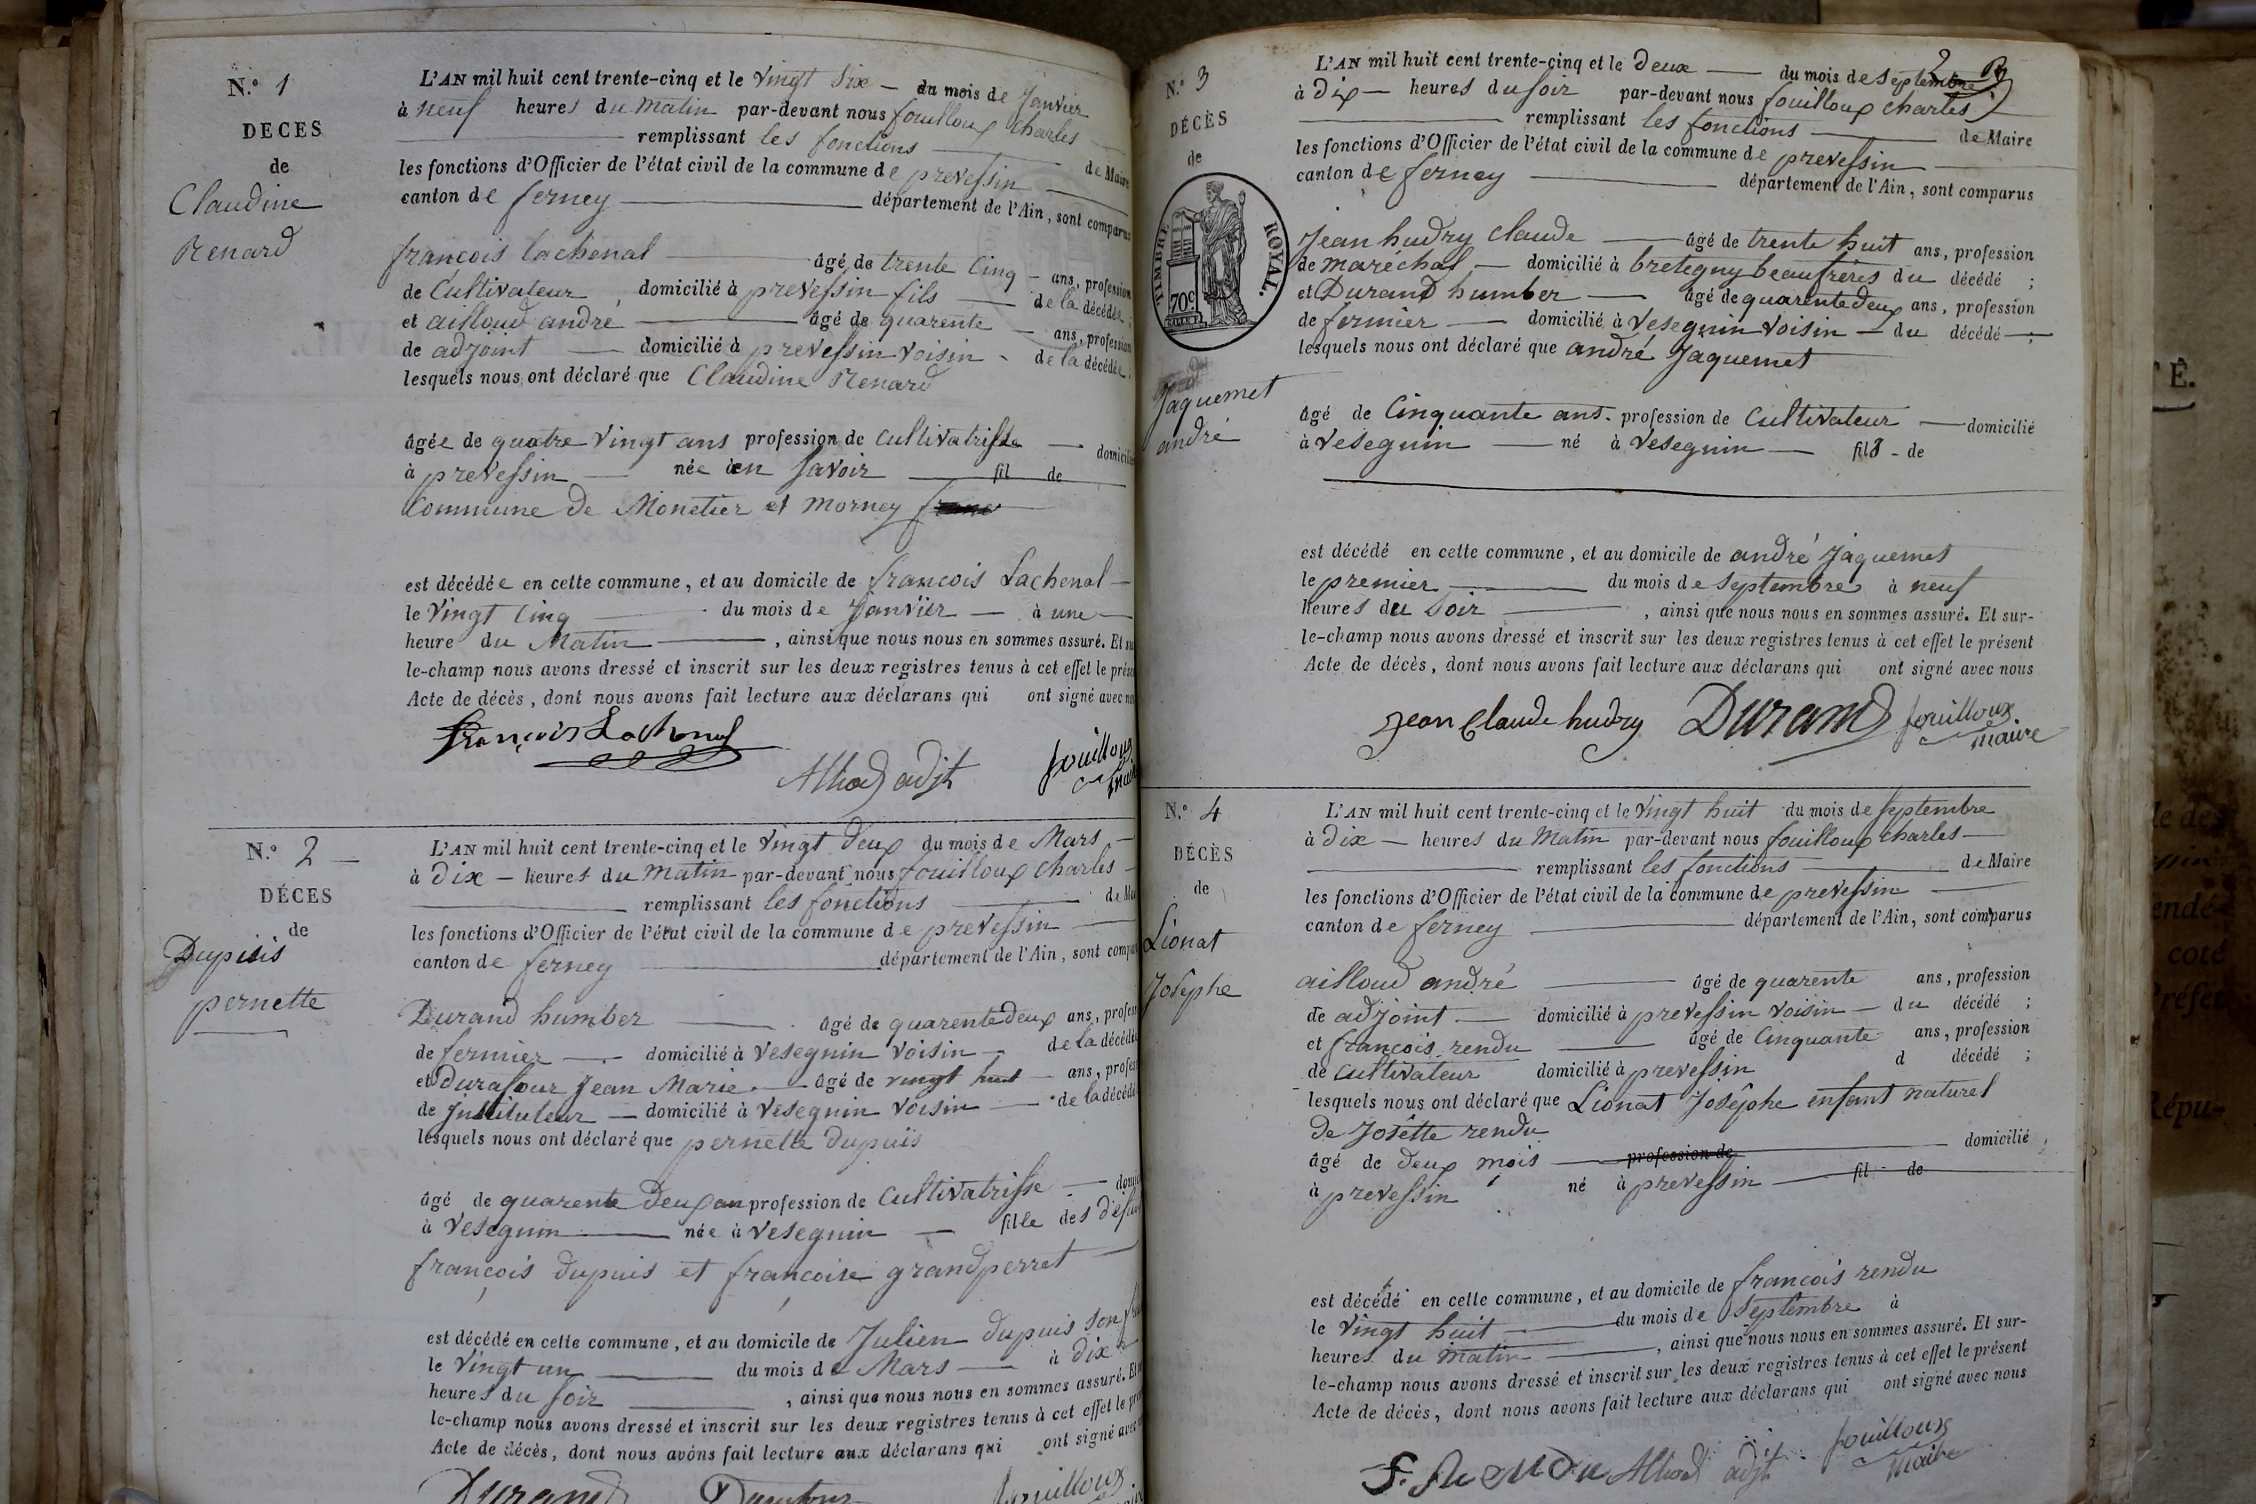 N.o 1
DECES
de
Claudine
Renard
L'AN mil huit cent trente-cinq et le vingt six — du mois de Janvier
à neuf heures du matin par-devant nous fouilloux Charles
remplissant les fonctions de Maire
les fonctions d'Officier de l'état civil de la commune de prevessin
canton de ferney département de l'Ain, sont comparus
francois Lachenal âgé de trente Cinq — ans, profession
de Cultivateur, domicilié à prevessin fils — de la décédée;
et ailloud andré âgé de quarente — ans, profession
de adjoint — domicilié à prevessin voisin - de la décédée.
lesquels nous ont déclaré que Claudine Renard
âgée de quatre vingt ans profession de cultivatrisse — domicilié
à prevessin — née en Savoir fil de
Commune de Monetier et Morney
est décédée en cette commune, et au domicile de francois Lachenal —
le Vingt Cinq du mois de Janvier — à une —
heure du Matin, ainsi que nous nous en sommes assuré. Et sur
le-champ nous avons dressé et inscrit sur les deux registres tenus à cet effet le prése
Acte de décès, dont nous avons fait lecture aux déclarans qui ont signé avec no
françois Lachenal
Alliod adjt
fouilloux
maire
N.o 2 —
DÉCES
de
Dupuis
pernette
L'AN mil huit cent trente-cinq et le vingt deux du mois de Mars —
à dix — heures du Matin par-devant nous fouilloux Charles —
remplissant les fonctions de Mai
les fonctions d'Officier de l'état civil de la commune de prevessin
canton de ferney département de l'Ain, sont compar
Durand humber âgé de quarente deux ans, profess
de fermier — domicilié à Vesegnin voisin — de la décédée
et Durafour Jean Marie — âgé de vingt huit — ans, profes
de Jnstituteur — domicilié à Vesegnin voisin — de la décédé
lesquels nous ont déclaré que pernette dupuis
âgé de quarente deux an profession de Cultivatrisse — domi
à Vesegnin née à Vesegnin — fille des defun
françois dupuis et françoise grandperret
est décédé en cette commune, et au domicile de Julien dupuis son
le Vingt un du mois de Mars — à dix
heures du soir, ainsi que nous nous en sommes assuré. Et
le-champ nous avons dressé et inscrit sur les deux registres tenus à cet effet le pré
Acte de décès, dont nous avons fait lecture aux déclarans qui ont signé avec
Durand Durafour fouilloux
2
N.o 3
DÉCÈS
de
TIMBRE ROYAL.
70c
Jaquemet
andré
L'AN mil huit cent trente-cinq et le deux — du mois de septembre
à dix — heures du soir par-devant nous fouilloux charles
remplissant les fonctions de Maire
les fonctions d'Officier de l'état civil de la commune de prevessin
canton de ferney département de l'Ain, sont comparus
Jean hudry Claude — âgé de trente huit ans, profession
de maréchal — domicilié à bretegny beaufrères du décédé;
et Durand humber — âgé de quarente deux ans, profession
de fermier — domicilié à Vesegnin voisin — du décédé —;
lesquels nous ont déclaré que andré Jaquemet
âgé de Cinquante ans. profession de Cultivateur — domicilié
à Vesegnin — né à Vesegnin — fils - de
est décédé en cette commune, et au domicile de andré Jaquemet
le premier du mois de septembre à neuf
heures du soir, ainsi que nous nous en sommes assuré. Et sur-
le-champ nous avons dressé et inscrit sur les deux registres tenus à cet effet le présent
Acte de décès, dont nous avons fait lecture aux déclarans qui ont signé avec nous
Jean Claude hudry Durand fouilloux
maire
N.o 4
DÉCÈS
de
Lionat
Josephe
L'AN mil huit cent trente-cinq et le vingt huit du mois de septembre
à dix — heures du Matin par-devant nous fouilloux charles —
remplissant les fonctions de Maire
les fonctions d'Officier de l'état civil de la commune de prevessin
canton de ferney département de l'Ain, sont comparus
ailloud andré âgé de quarente ans, profession
de adjoint — domicilié à prevessin voisin — du décédé;
et francois rendu âgé de Cinquante ans, profession
de Cultivateur domicilié à prevessin d décédé;
lesquels nous ont déclaré que Lionat Josêphe enfant naturel
de Josette rendu
âgé de deux mois profession de domicilié
à prevessin né à prevessin — fil de
est décédé en cette commune, et au domicile de francois rendu
le vingt huit du mois de septembre à
heures du matin, ainsi que nous nous en sommes assuré. Et sur-
le-champ nous avons dressé et inscrit sur les deux registres tenus à cet effet le présent
Acte de décès, dont nous avons fait lecture aux déclarans qui ont signé avec nous
Alliod adjt fouilloux
maire
Ê.
le des
endé-
coté
Préfet
Répu-